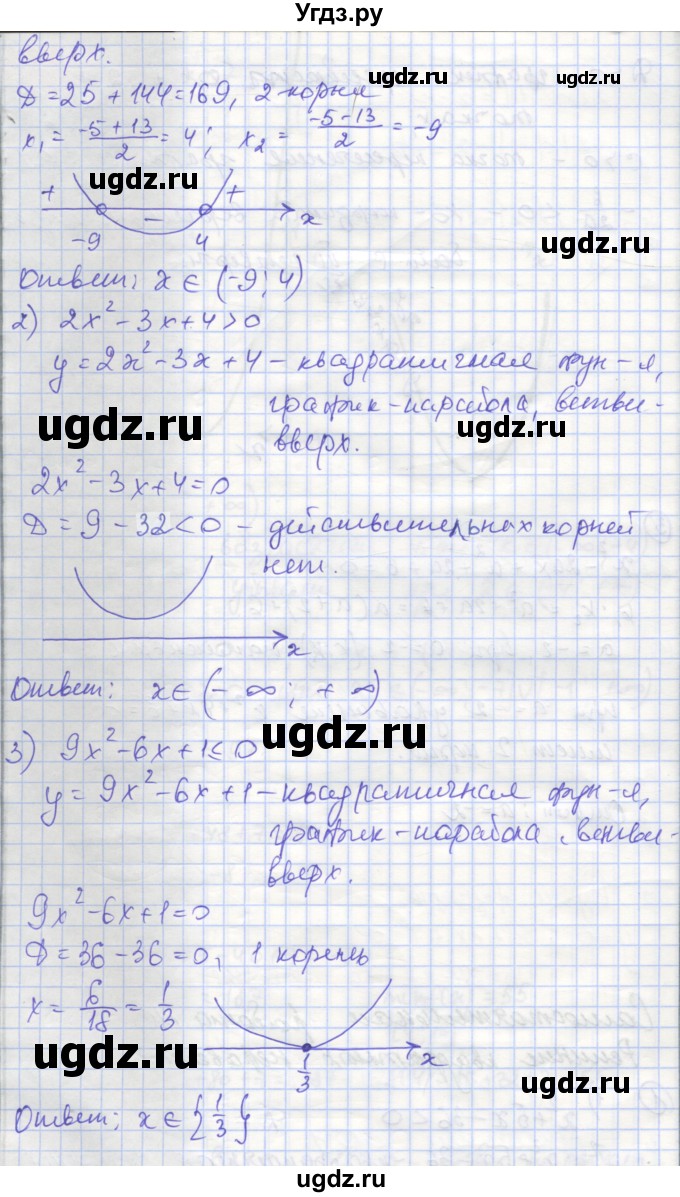 Угдз.ру
вверх.
D = 25 + 144 = 169, 2 корня
x₁ = (-5 + 13)/2 = 4; x₂ = (-5 - 13)/2 = -9
ugdz.ru
+ − +
ugdz.ru
-9 4 x
Ответ: x ∈ (-9; 4)
2) 2x² - 3x + 4 > 0
y = 2x² - 3x + 4 – квадратичная фун-я,
ugdz.ru
график - парабола, ветви -
ugdz.ru
вверх.
2x² - 3x + 4 = 0
D = 9 - 32 < 0 – действительных корней
нет.
x
Ответ: x ∈ (-∞; +∞)
ugdz.ru
3) 9x² - 6x + 1 ≤ 0
y = 9x² - 6x + 1 – квадратичная фун-я,
ugdz.ru
график - парабола, ветви -
ugdz.ru
вверх.
9x² - 6x + 1 = 0
D = 36 - 36 = 0, 1 корень
x = 6/18 = 1/3
ugdz.ru
1/3 x
ugdz.ru
Ответ: x ∈ {1/3}
ugdz.ru